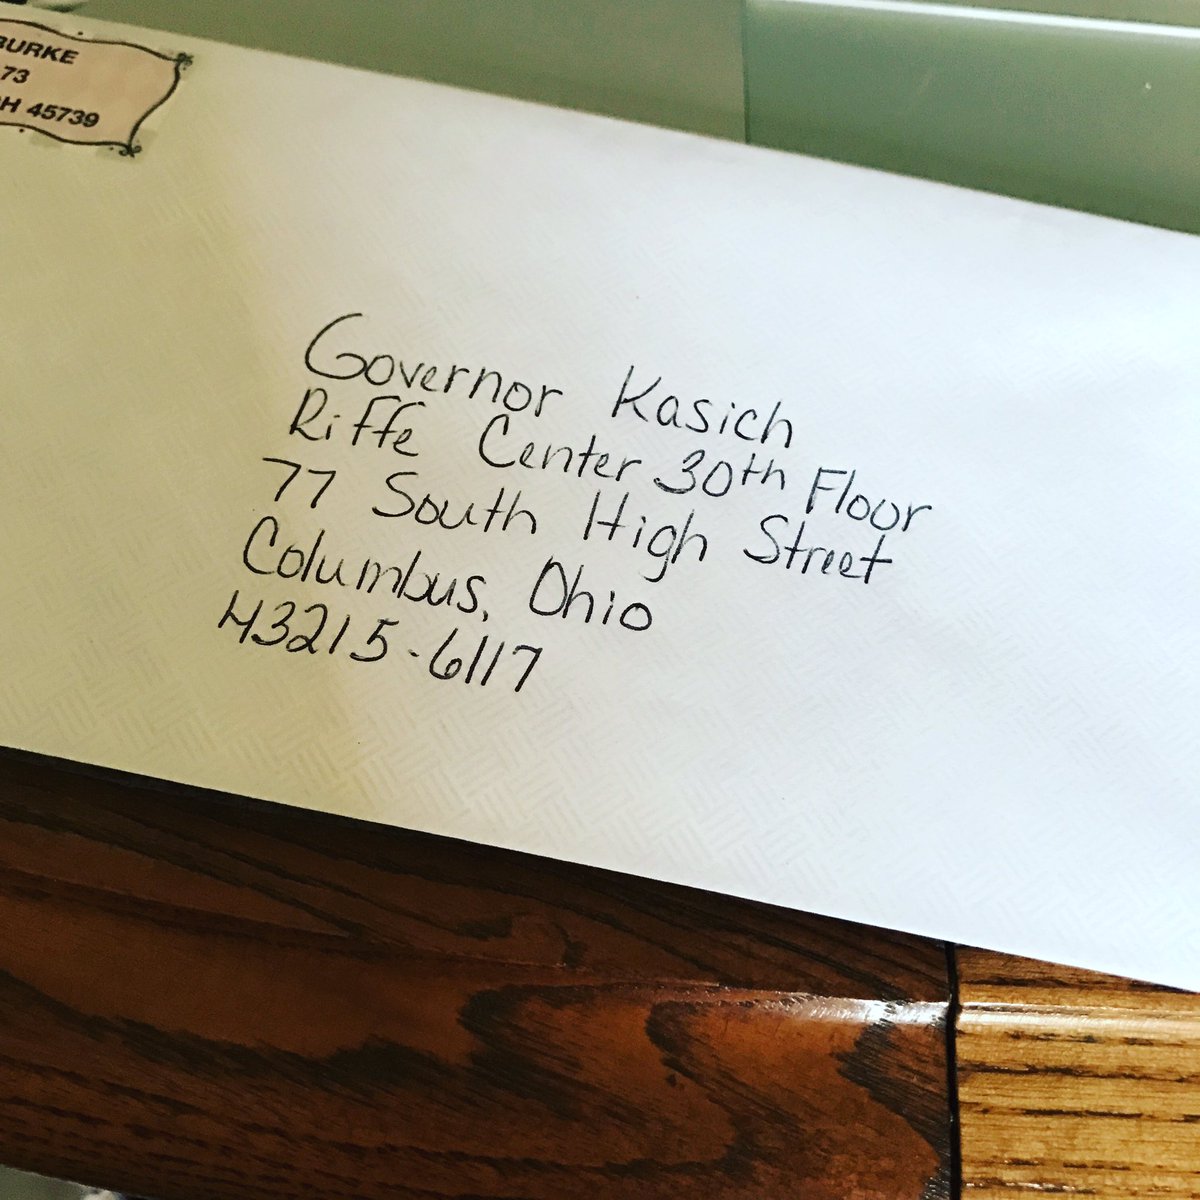 BURKE
73
OH 45739
Governor Kasich
Riffe Center 30th Floor
77 South High Street
Columbus, Ohio
43215-6117